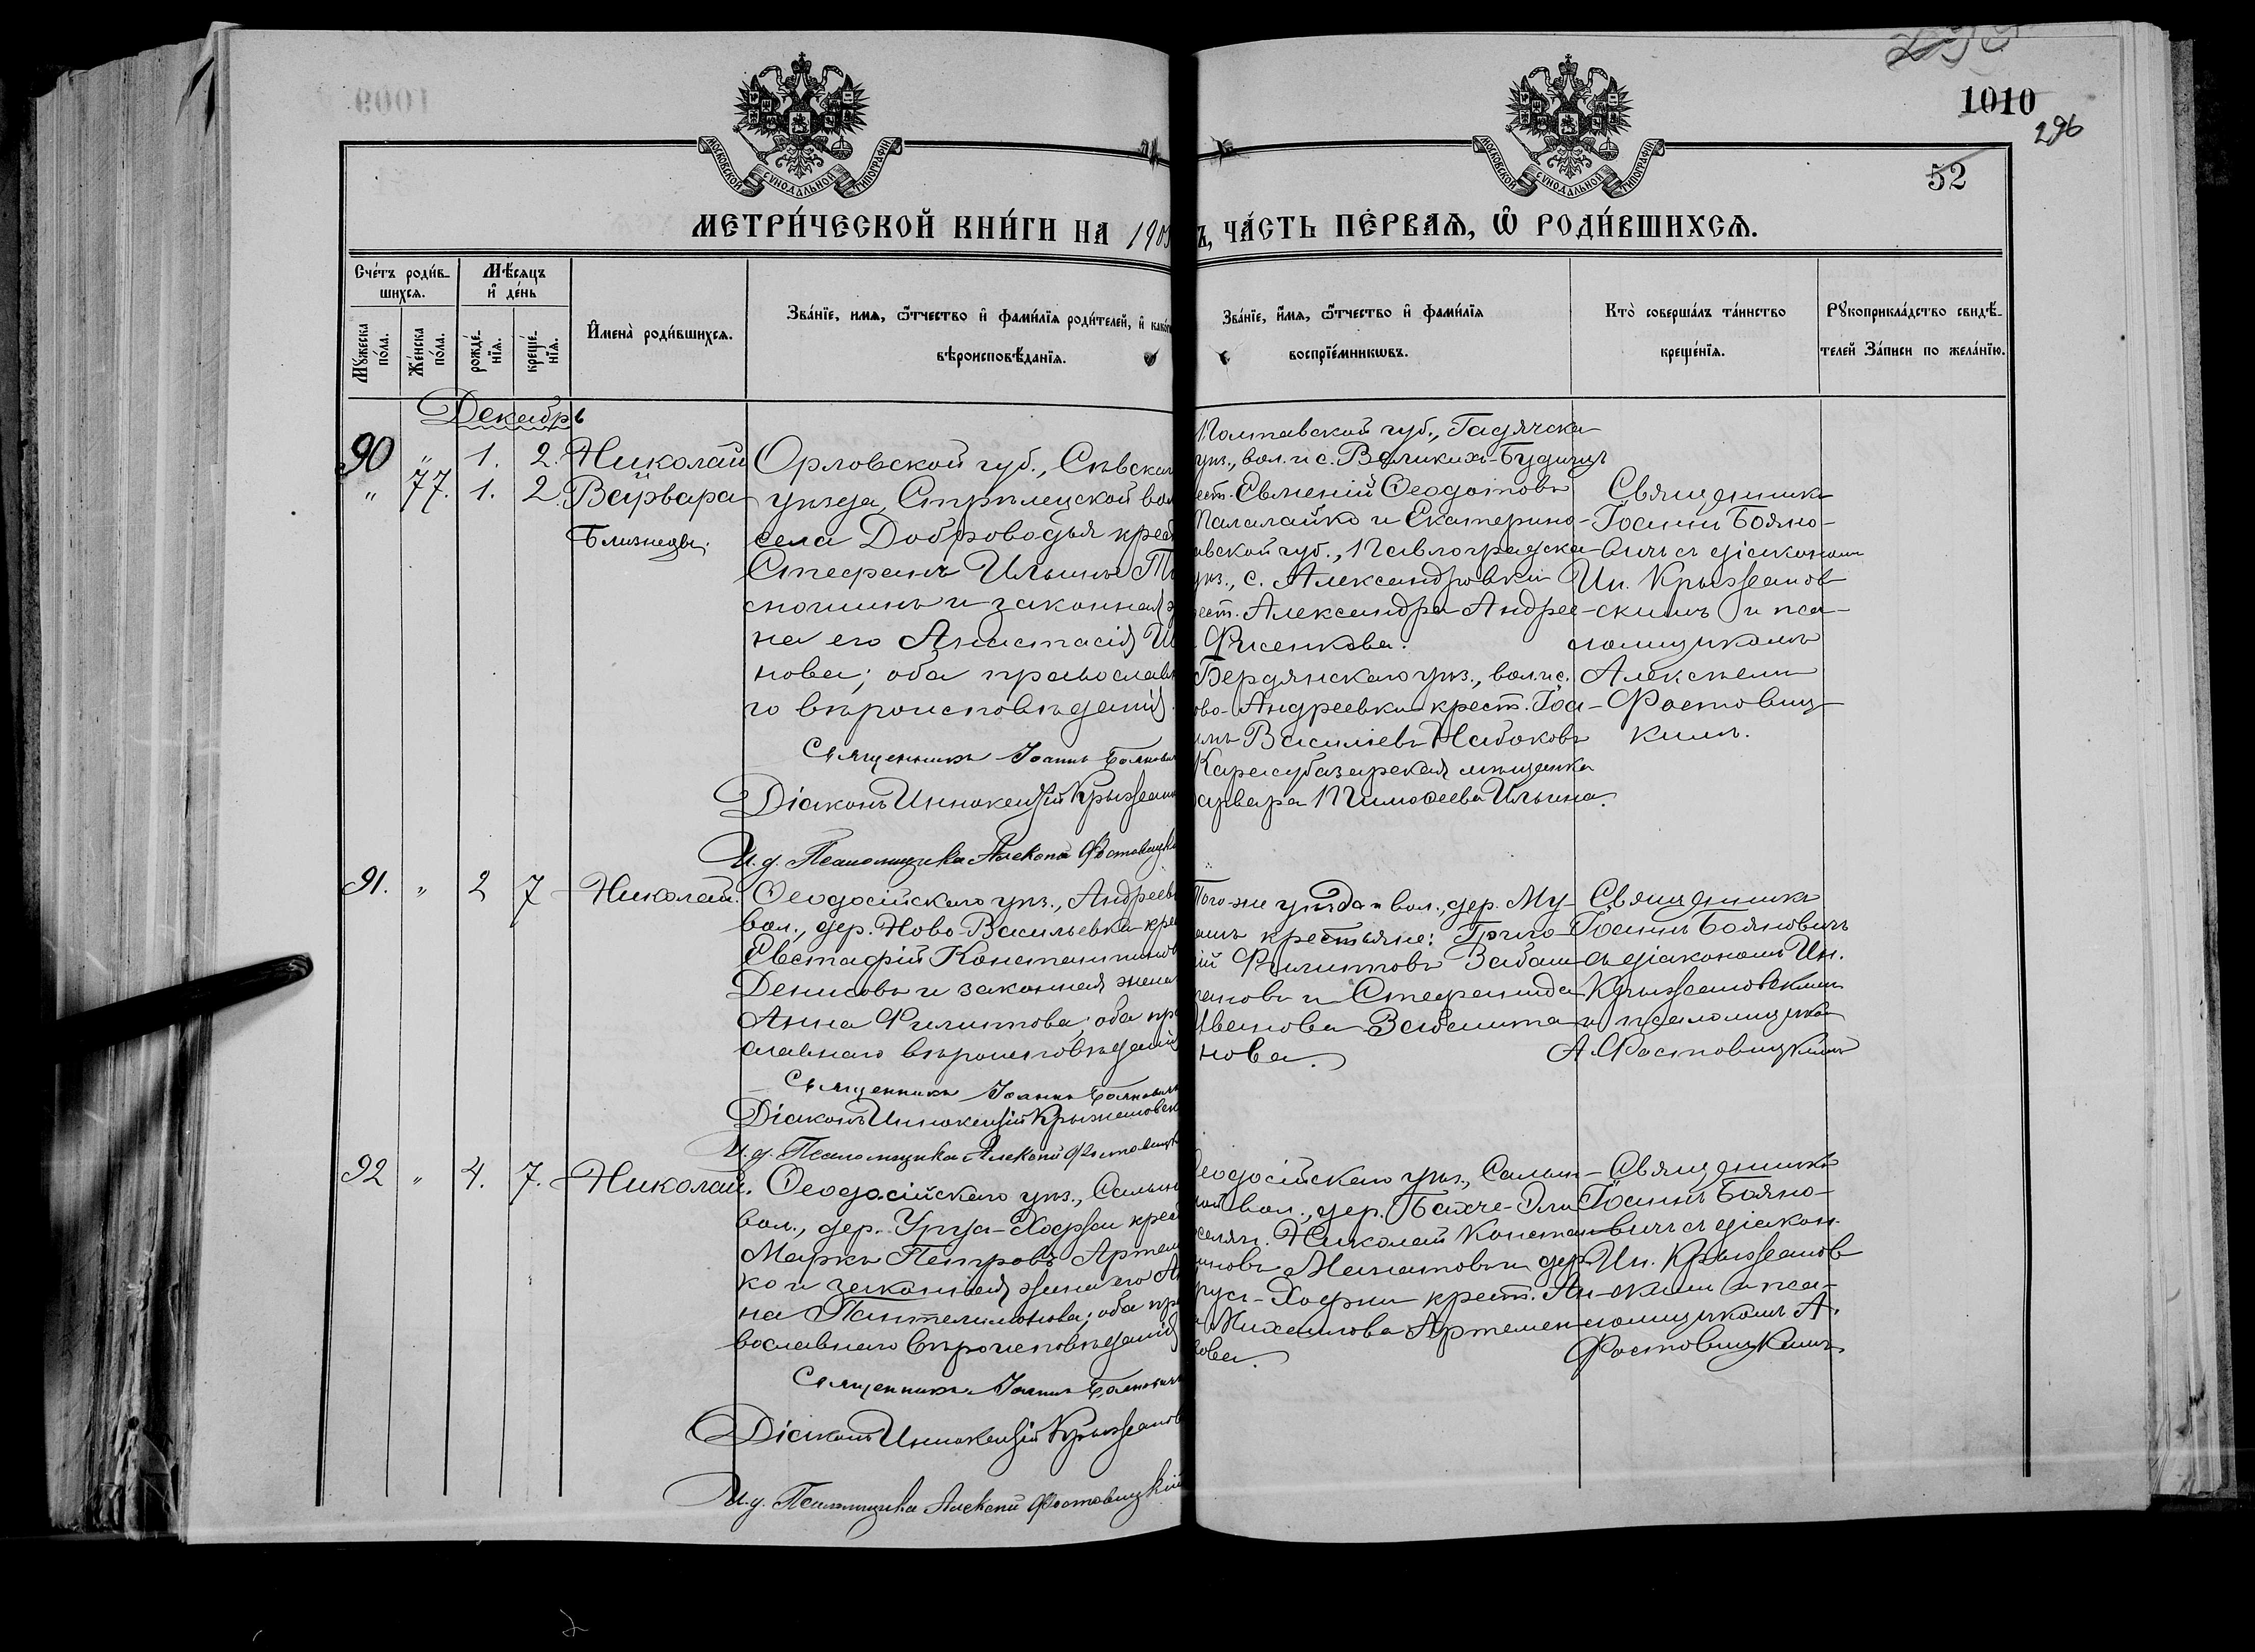 1010
296
52
МОСКОВСКОЙ СѴНОДАЛЬНОЙ ТИПОГРАФІИ
МОСКОВСКОЙ СѴНОДАЛЬНОЙ ТИПОГРАФІИ
МЕТРИ́ЧЕСКОЙ КНИ́ГИ НА 190
Ъ, ЧА́СТЬ ПЕ́РВАѦ, Ѡ҆ РОДИ́ВШИХСѦ.
Сче́тъ роди́в-
шихсѧ.
Мѣ́сѧцъ
и҆ де́нь
Мꙋ́жеска
по́ла.
Же́нска
по́ла.
рожде́-
нїѧ.
креще́-
нїѧ.
И҆мена̀ роди́вшихсѧ.
Зва́нїе, имѧ, ѻ҆́тчество и҆ фами́лїѧ роди́телей, и҆
вѣроисповѣ́данїѧ.
Зва́нїе, и҆́мѧ, ѻ҆́тчество и҆ фами́лїѧ
воспрїе́мникѡвъ.
Кто̀ соверша́лъ та́инство
креще́нїѧ.
Рꙋкоприкла́дство свидѣ́-
телей За́писи по жела́нїю.
Декабрь
90 " 1. 2. Николай
" 77. 1. 2. Варвара
Близнецы.
Орловской губ., Сѣвска
уѣзда, Стрѣлецской вол
села Доброводья крест
Стефанъ Ильинъ
и законная
на его Анастасія
нова; оба православн
го вѣроисповѣданія.
Священникъ Іоаннъ Боянович
Діаконъ Иннокентій Крыжанов
И. д. Псаломщика Алексѣй Фостовицк
Полтавской губ., Гадячска-
уѣз., вол. и с. Великихъ-Будищъ
ест. Евменій Ѳеодотовъ
Палалайко и Екатерино-
авской губ., Павлоградска-
уѣз., с. Александровки
рест. Александра Андрее-
Фисенкова.
Бердянскаго уѣз., вол. и с.
ово-Андреевки крест. Іоа-
Василіевъ Набоковъ
Карасубазарская мѣщанка
арвара Тимоѳеева Ильина.
Священникъ
Іоаннъ Бояно-
вичъ съ діакономъ
Ин. Крыжанов-
скимъ и пса-
ломщикомъ
Алексѣемъ
Фостовиц-
кимъ.
91. " 2 7 Николай.
Ѳеодосійскаго уѣз., Андреев
вол., дер. Ново-Васильевка кре
Евстафій Константинов
Денисовъ и законная жена
Анна Филиппова; оба пр
славнаго вѣроисповѣданія
Священникъ Іоаннъ Боянович
Діаконъ Иннокентій Крыжановск
И. д. Псаломщика Алексѣй Фостовицк
Того-же уѣзда и вол., дер. Му-
крестьяне: Григо-
ій Филипповъ Забаш-
и Стефанида
Иванова Забашта-
нова.
Священникъ
Іоаннъ Бояновичъ
съ діакономъ Ин.
Крыжановскимъ
и псаломщиком
А. Фостовицкимъ
92 " 4. 7. Николай.
Ѳеодосійскаго уѣз., Салын
вол., дер. Урусъ-Ходжи крес
Маркъ Петровъ Артем
ко и законная жена его Ан
на Пантелимонова; оба пр
вославнаго вѣроисповѣданія
Священникъ Іоаннъ Боянович
Діаконъ Иннокентій Крыжанов
И. д. Псаломщика Алексѣй Фостовицкій
Ѳеодосійскаго уѣз., Салын-
ской вол., дер. Бахче-Эли
Николай Констан-
тиновъ дер.
русъ-Ходжи крест. Ан-
Михаилова Артемен-
кова.
Священникъ
Іоаннъ Бояно-
вичъ съ діакон.
Ин. Крыжанов-
скимъ и пса-
ломщикомъ А.
Фостовицкимъ.